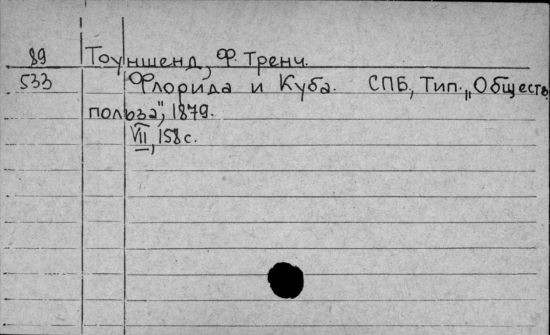 89 Тоуншенд, Ф. Тренч.
533 Флорида и Куба. СПБ, Тип. „Обществ
польза", 1879.
VII, 158 с.